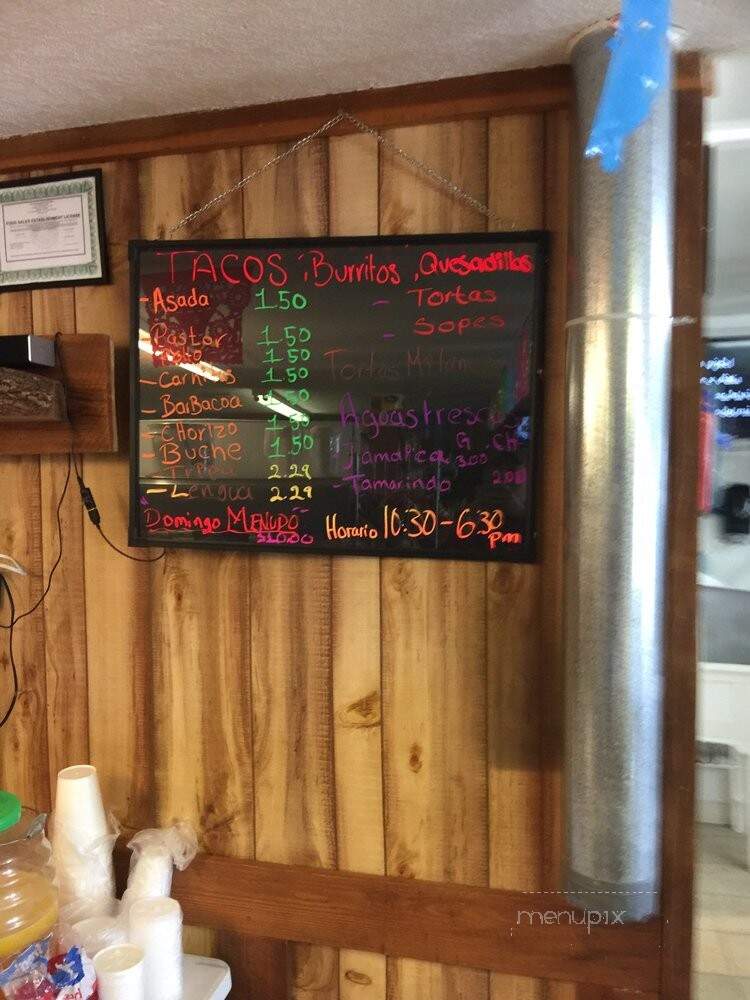 FOOD SALES ESTABLISHMENT LICENSE
TACOS ¡Burritos, Quesadillas
-Asada 1.50
- Tortas
-Pastor 1.50
- Sopes
1.50
-Carnitas 1.50
Tortas
-BarBacoa 1.50
-CHorizo 1.50
-Buche 1.50
Tripa 2.29
-Lengua 2.29
Aguas frescas
G .CH
-Jamaica 3.00
-Tamarindo 2.00
Domingo MENUDO
$10.00
Horario 10:30-6:30
pm
menupix